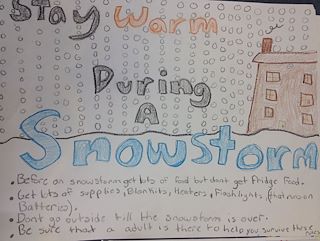 Stay Warm
During
A
Snowstorm
• Before an snowstorm get lots of food but dont get fridge food.
• Get Lots of supplies, Blankits, Heaters, Flashlights (that run on
Batteries).
• Dont go outside till the snowstorm is over.
• Be sure that a adult is there to help you survive these